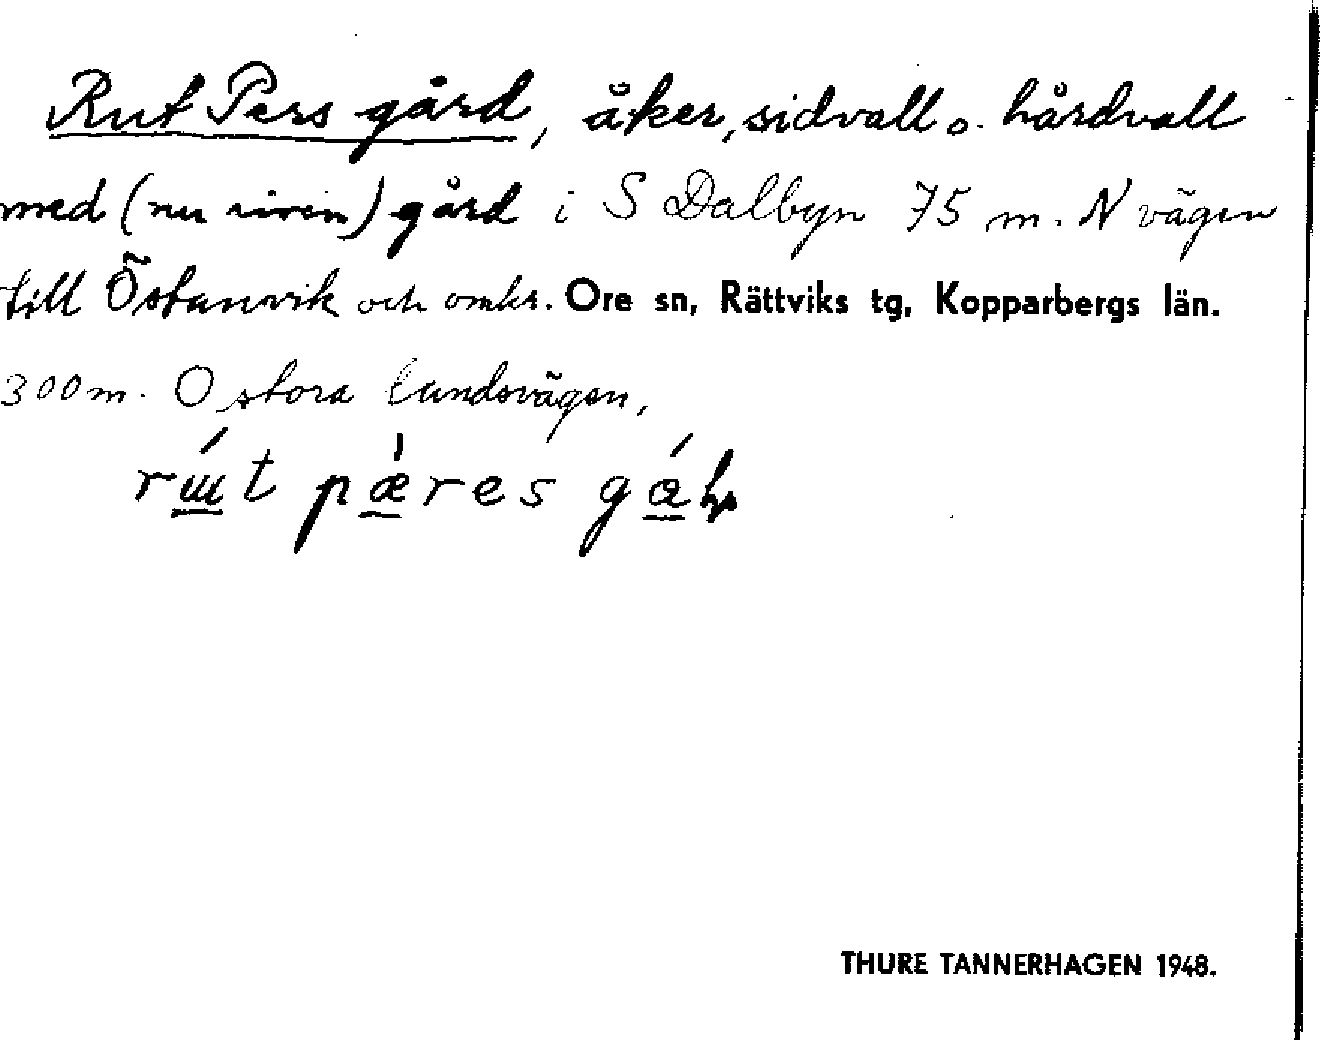 Rut Pers gård, åker, sidvall o. hårdvall
med (nu riven) gård i S Dalbyn 75 m. N vägen
till Östanvik och omkr. Ore sn, Rättviks tg, Kopparbergs län.
300 m. O stora landsvägen,
t pǽres
THURE TANNERHAGEN 1948.